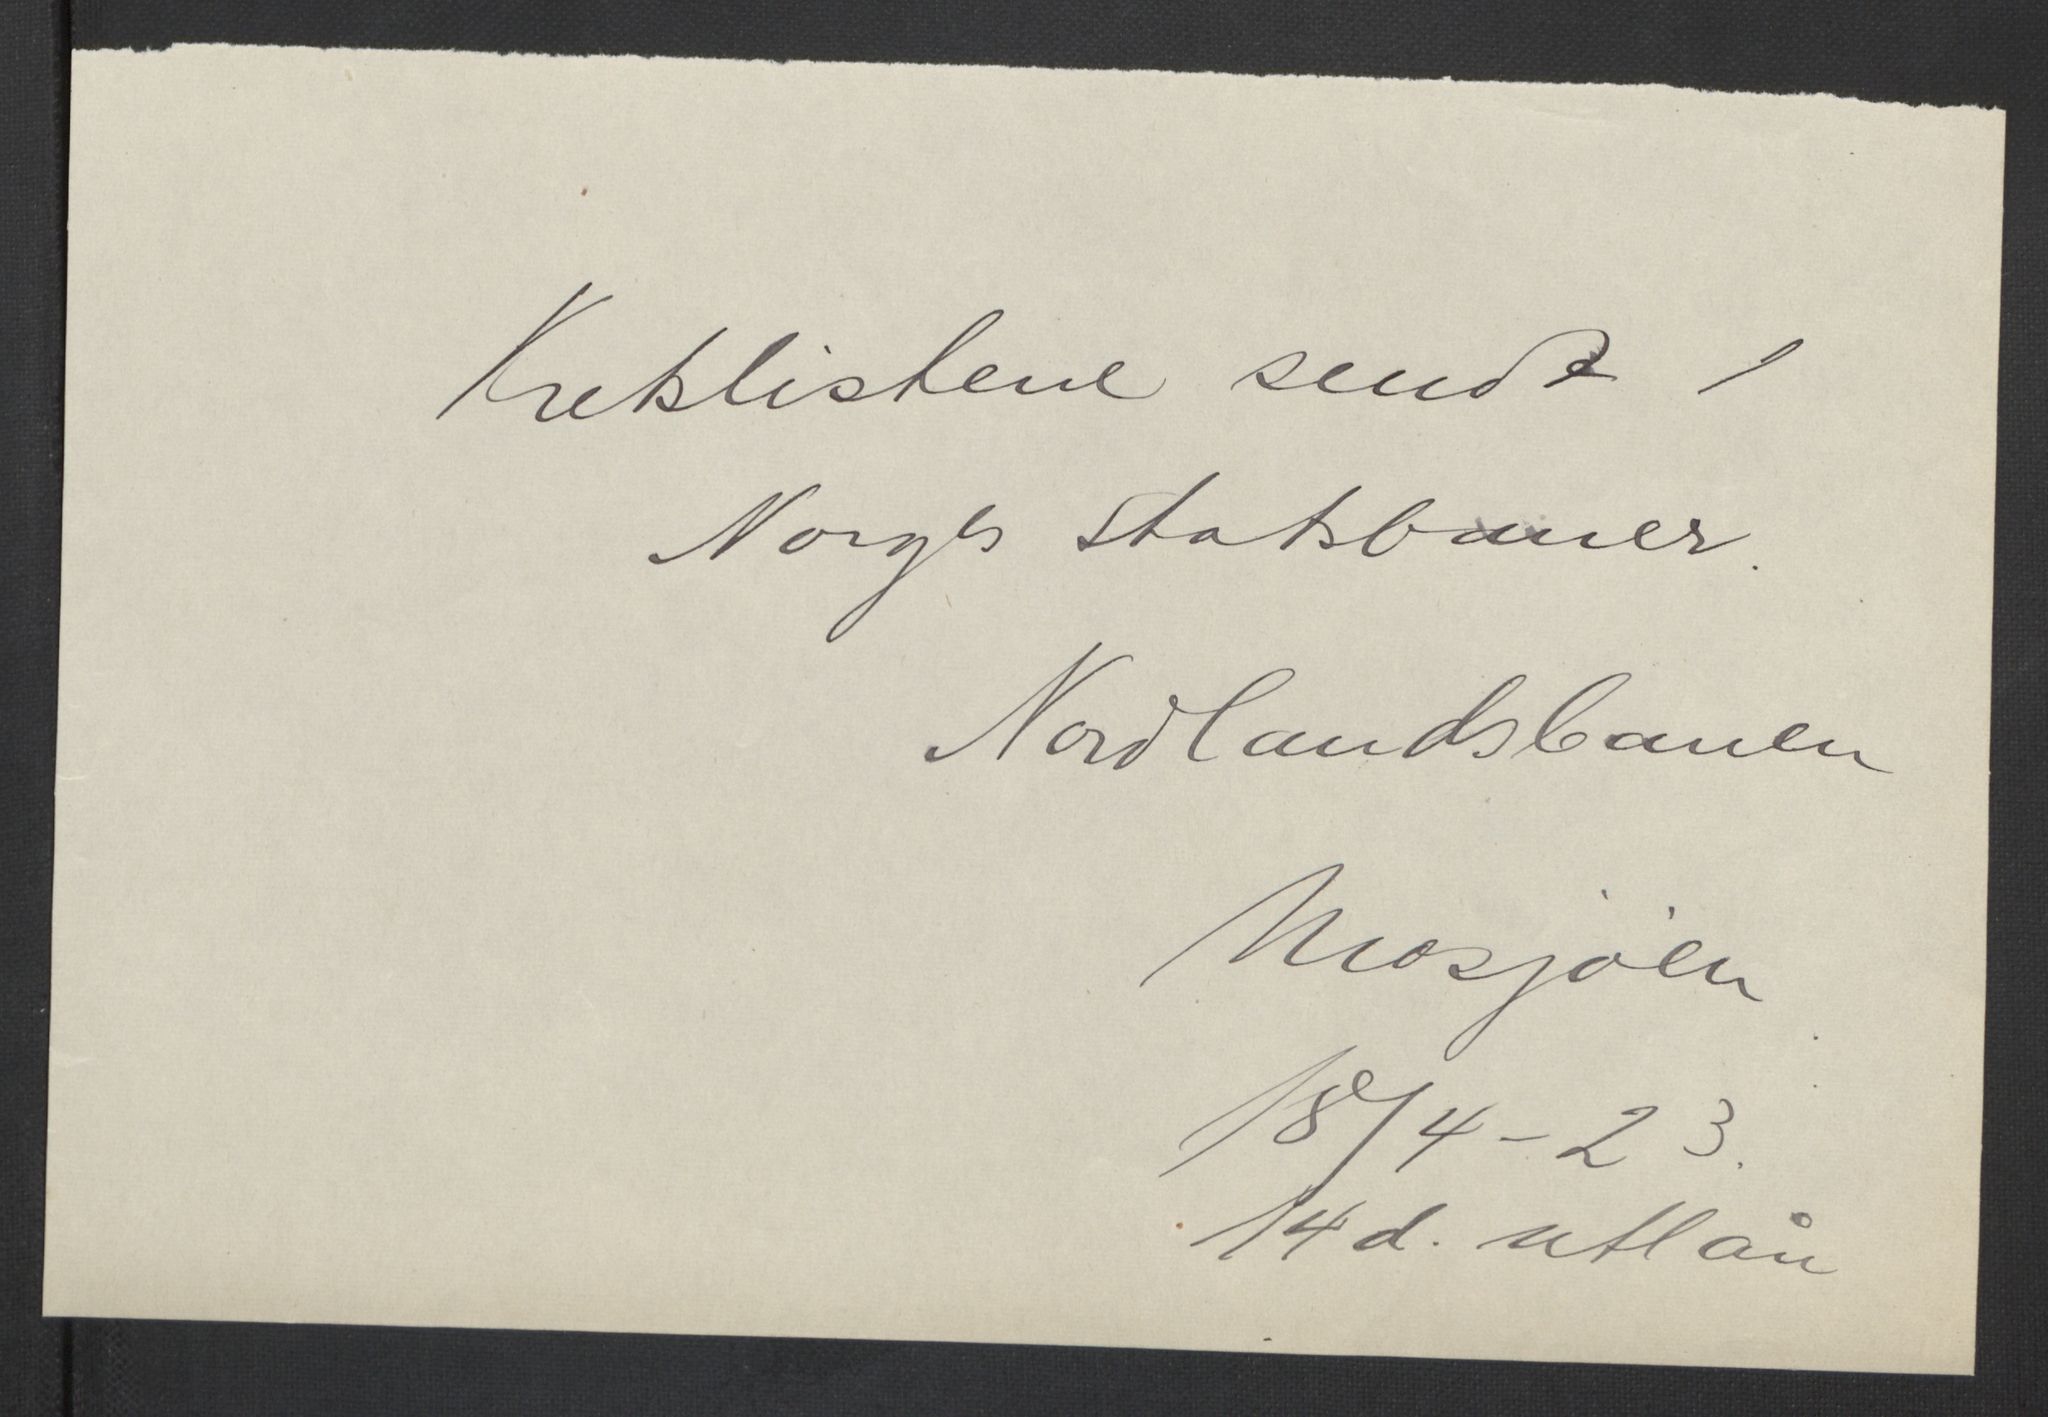 Kretslistene sendt
Norges statsbaner.
Nordlandsbanen
Mosjöen
18/4-23.
14 d. utlån